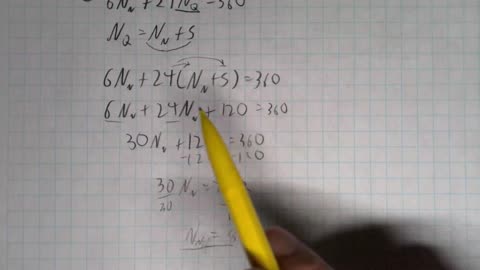 6Nₙ + 24N_Q = 360
N_Q = Nₙ + 5
6Nₙ + 24(Nₙ + 5) = 360
6Nₙ + 24Nₙ + 120 = 360
30Nₙ + 12 = 360
-12 -120
30 Nₙ =
30
Nₙ =